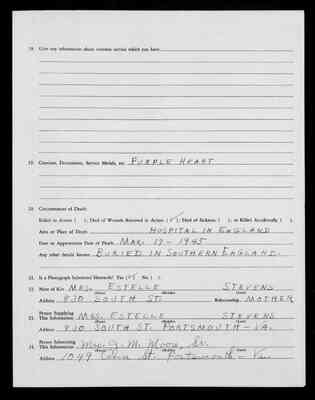 18. Give any information about overseas service which you have
19. Citations, Decorations, Service Medals, etc. PURPLE HEART
20. Circumstances of Death:
Killed in Action ( ); Died of Wounds Received in Action (✓); Died of Sickness ( ); or Killed Accidentally ( ).
Area or Place of Death HOSPITAL IN ENGLAND
Date or Approximate Date of Death MAR. 19 - 1945
Any other details known BURIED IN SOUTHERN ENGLAND.
21. Is a Photograph Submitted Herewith? Yes (✓) No ( )
22. Next of Kin MRS. ESTELLE STEVENS
(First) (Middle) (Last)
Address 930 SOUTH ST. Relationship MOTHER
23. Person Supplying This Information MRS. ESTELLE STEVENS
(First) (Middle) (Last)
Address 930 SOUTH ST. PORTSMOUTH - VA.
24. Person Submitting This Information Mrs. J. M. Moore, Sr.
(First) (Middle) (Last)
Address 1049 St. Portsmouth - Va.